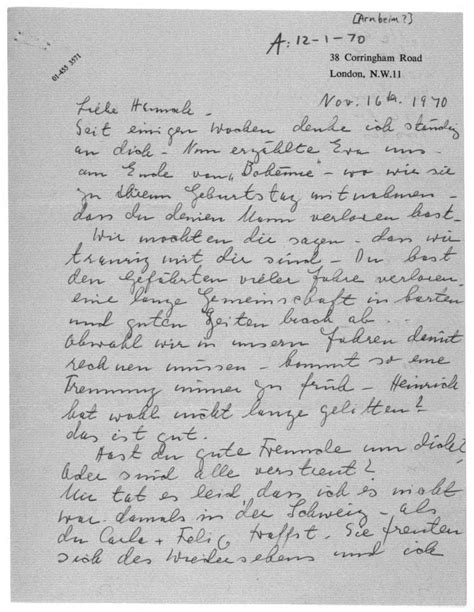 [Arnheim?]
A: 12-1-70
01-455 3571
38 Corringham Road
London, N.W.11
Nov. 16th. 1970
Liebe Hannah -
Seit einigen Wochen denke ich ständig
an dich - Nun erzählte Eva uns -
am Ende von "Bohème" - wo wir sie
zu ihrem Geburtstag mitnahmen -
dass du deinen Mann verloren hast -
Wir möchten dir sagen - dass wir
traurig mit dir sind - Du hast
den Gefährten vieler Jahre verloren -
eine lange Gemeinschaft in harten
und guten Zeiten brach ab ..
Obwohl wir in unsern Jahren damit
rechnen müssen - kommt so eine
Trennung immer zu früh - Heinrich
hat wohl nicht lange gelitten?
das ist gut.
Hast du gute Freunde um dich?
Oder sind alle verstreut?
Mir tat es leid dass ich es nicht
war - damals in der Schweiz - als
du Carla + Felix traffst. Sie freuten
sich des Wiedersehens und ich